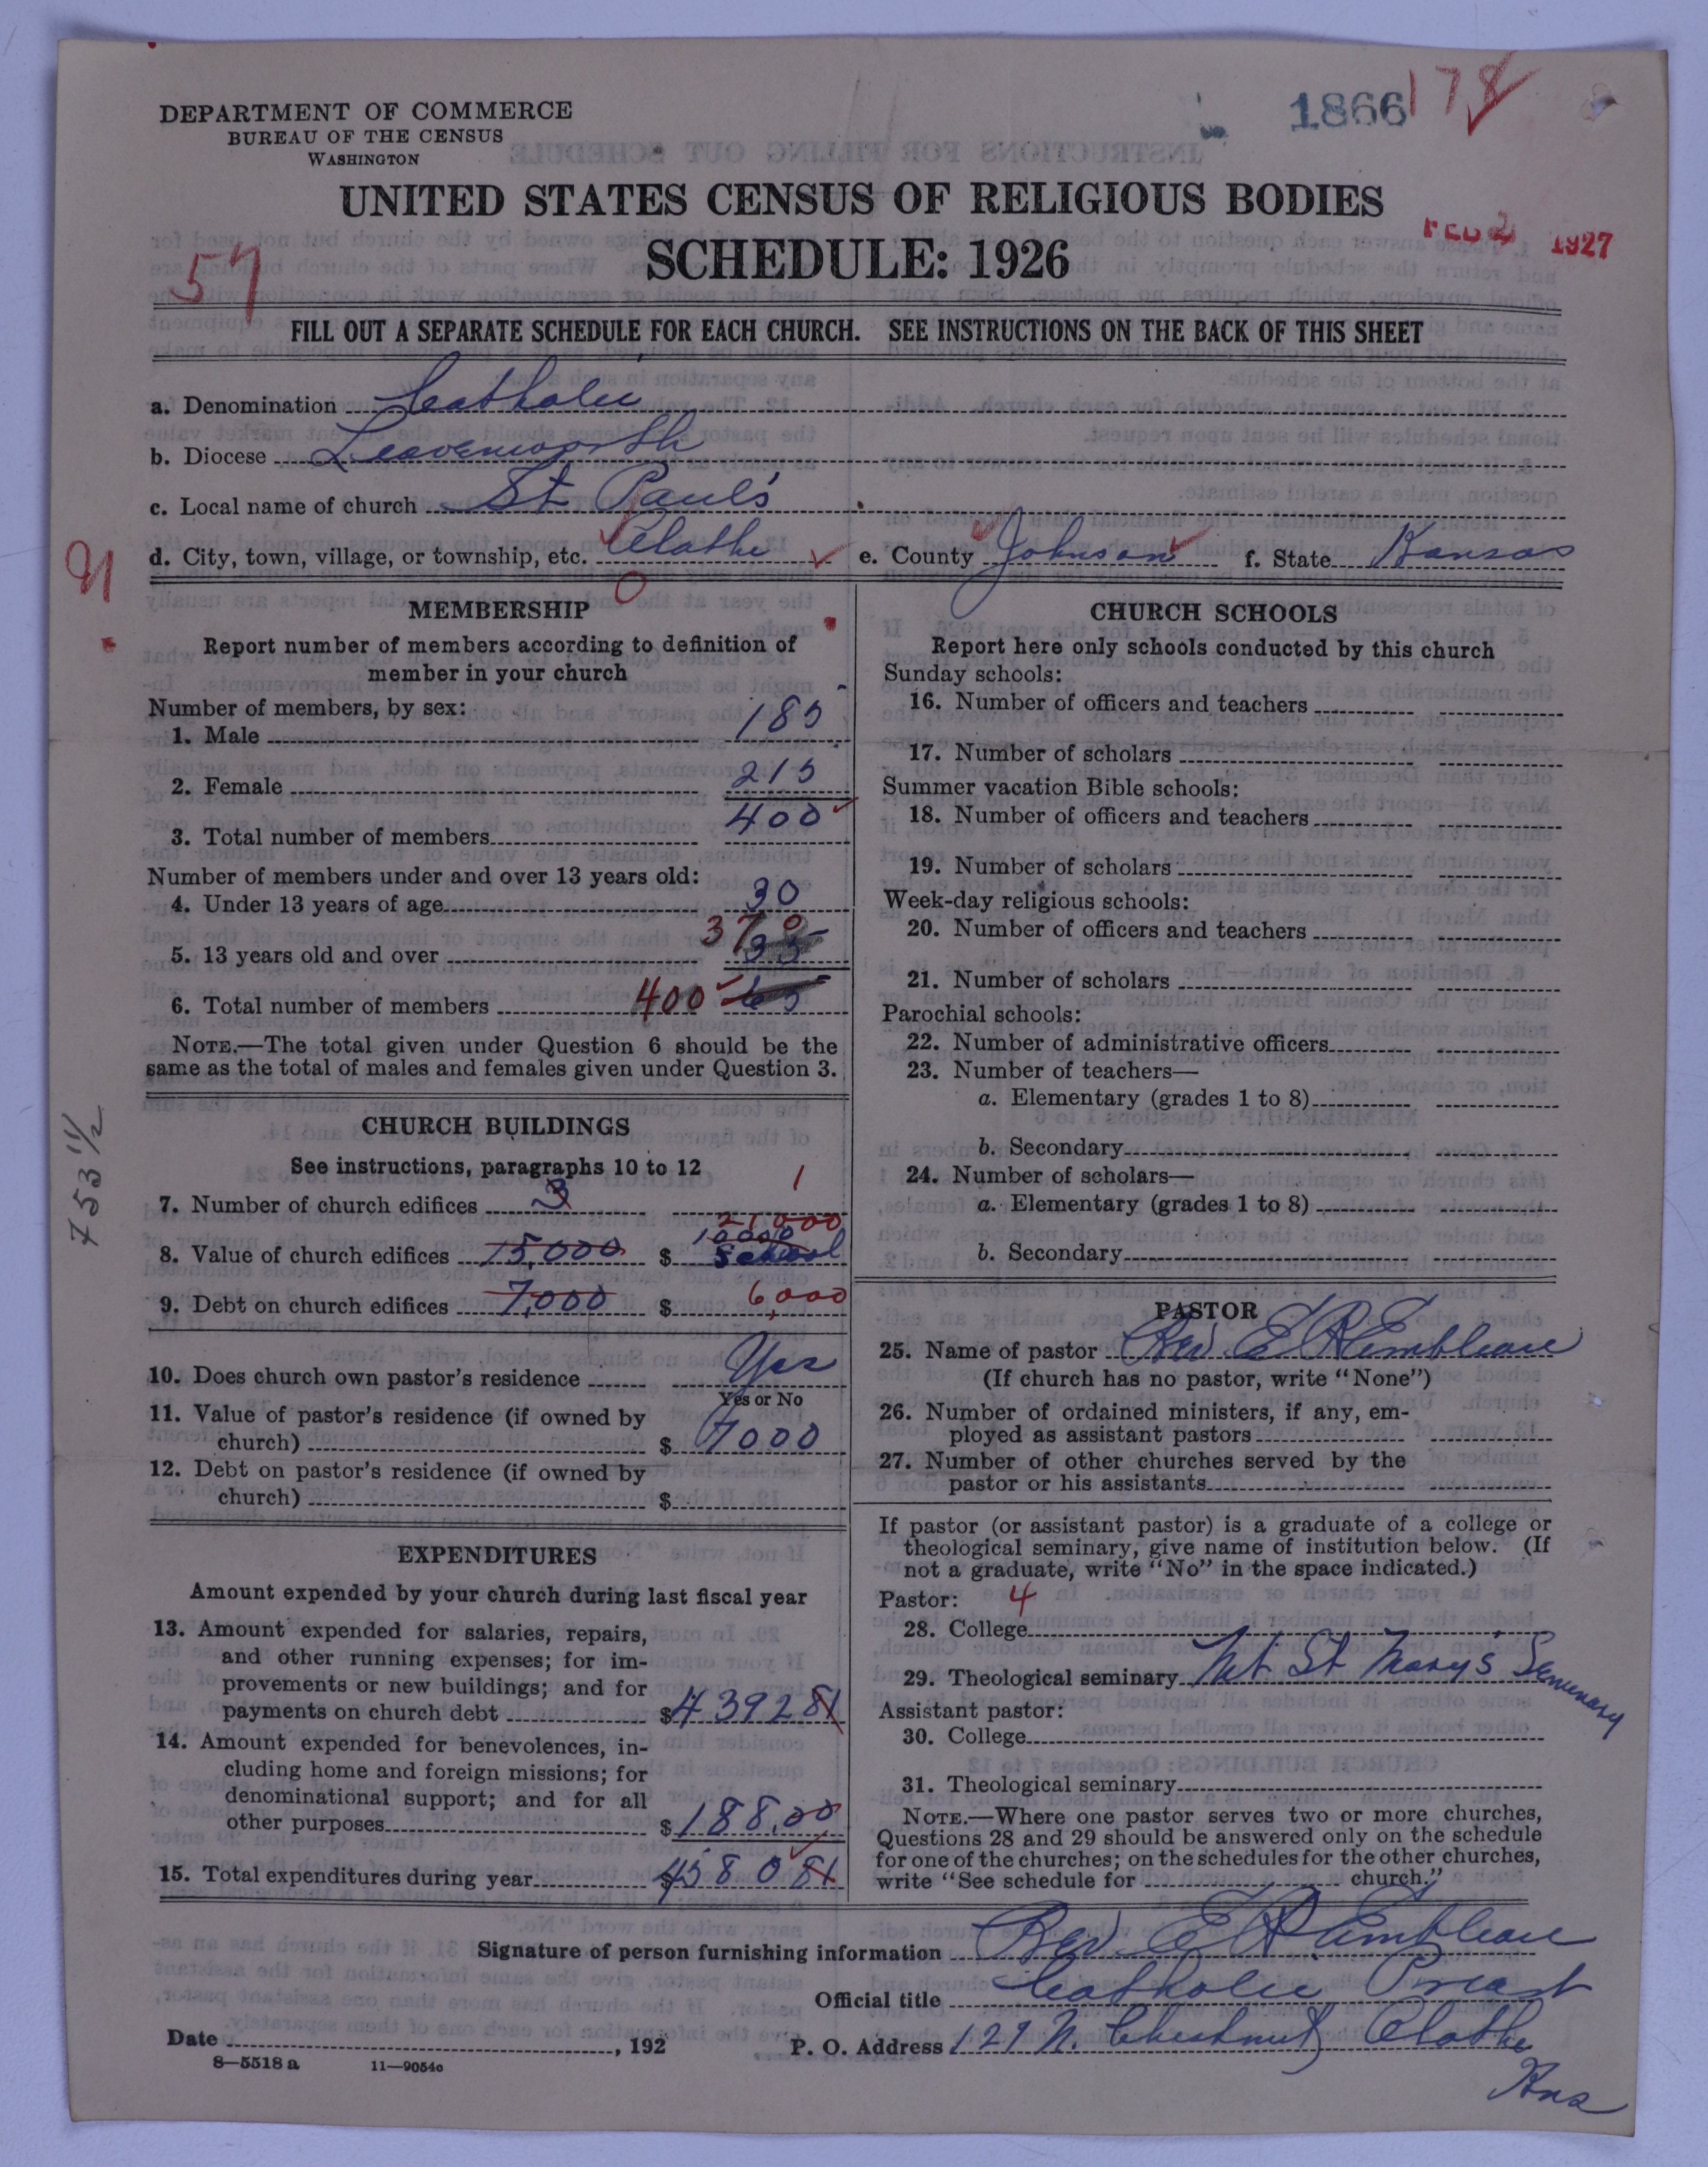 DEPARTMENT OF COMMERCE
BUREAU OF THE CENSUS
WASHINGTON
1866
178
UNITED STATES CENSUS OF RELIGIOUS BODIES
SCHEDULE: 1926
FEB 2 1927
57
FILL OUT A SEPARATE SCHEDULE FOR EACH CHURCH. SEE INSTRUCTIONS ON THE BACK OF THIS SHEET
a. Denomination Catholic
b. Diocese Leavenworth
c. Local name of church St Paul's
d. City, town, village, or township, etc. Olathe e. County Johnson f. State Kansas
MEMBERSHIP
Report number of members according to definition of
member in your church
Number of members, by sex:
1. Male 185
2. Female 215
3. Total number of members 400
Number of members under and over 13 years old:
4. Under 13 years of age 30
5. 13 years old and over 370 35
6. Total number of members 400 65
NOTE.—The total given under Question 6 should be the
same as the total of males and females given under Question 3.
753 1/2
CHURCH BUILDINGS
See instructions, paragraphs 10 to 12
7. Number of church edifices 3 1
21000
10000
8. Value of church edifices 15,000 $ School
9. Debt on church edifices 7,000 $ 6,000
10. Does church own pastor's residence Yes
Yes or No
11. Value of pastor's residence (if owned by
church) $ 7000
12. Debt on pastor's residence (if owned by
church) $
EXPENDITURES
Amount expended by your church during last fiscal year
13. Amount expended for salaries, repairs,
and other running expenses; for im-
provements or new buildings; and for
payments on church debt $ 4392 81
14. Amount expended for benevolences, in-
cluding home and foreign missions; for
denominational support; and for all
other purposes $ 188.00
15. Total expenditures during year $ 4580 81
CHURCH SCHOOLS
Report here only schools conducted by this church
Sunday schools:
16. Number of officers and teachers
17. Number of scholars
Summer vacation Bible schools:
18. Number of officers and teachers
19. Number of scholars
Week-day religious schools:
20. Number of officers and teachers
21. Number of scholars
Parochial schools:
22. Number of administrative officers
23. Number of teachers—
a. Elementary (grades 1 to 8)
b. Secondary
24. Number of scholars—
a. Elementary (grades 1 to 8)
b. Secondary
PASTOR
25. Name of pastor Rev. E R Embleau
(If church has no pastor, write "None")
26. Number of ordained ministers, if any, em-
ployed as assistant pastors
27. Number of other churches served by the
pastor or his assistants
If pastor (or assistant pastor) is a graduate of a college or
theological seminary, give name of institution below. (If
not a graduate, write "No" in the space indicated.)
Pastor: 4
28. College
29. Theological seminary Mt St Mary's Seminary
Assistant pastor:
30. College
31. Theological seminary
NOTE.—Where one pastor serves two or more churches,
Questions 28 and 29 should be answered only on the schedule
for one of the churches; on the schedules for the other churches,
write "See schedule for church."
Signature of person furnishing information Rev. E R Embleau
Official title Catholic Priest
Date , 192 P. O. Address 129 N. Chestnut Olathe
Kns
8—5518 a 11—9054c